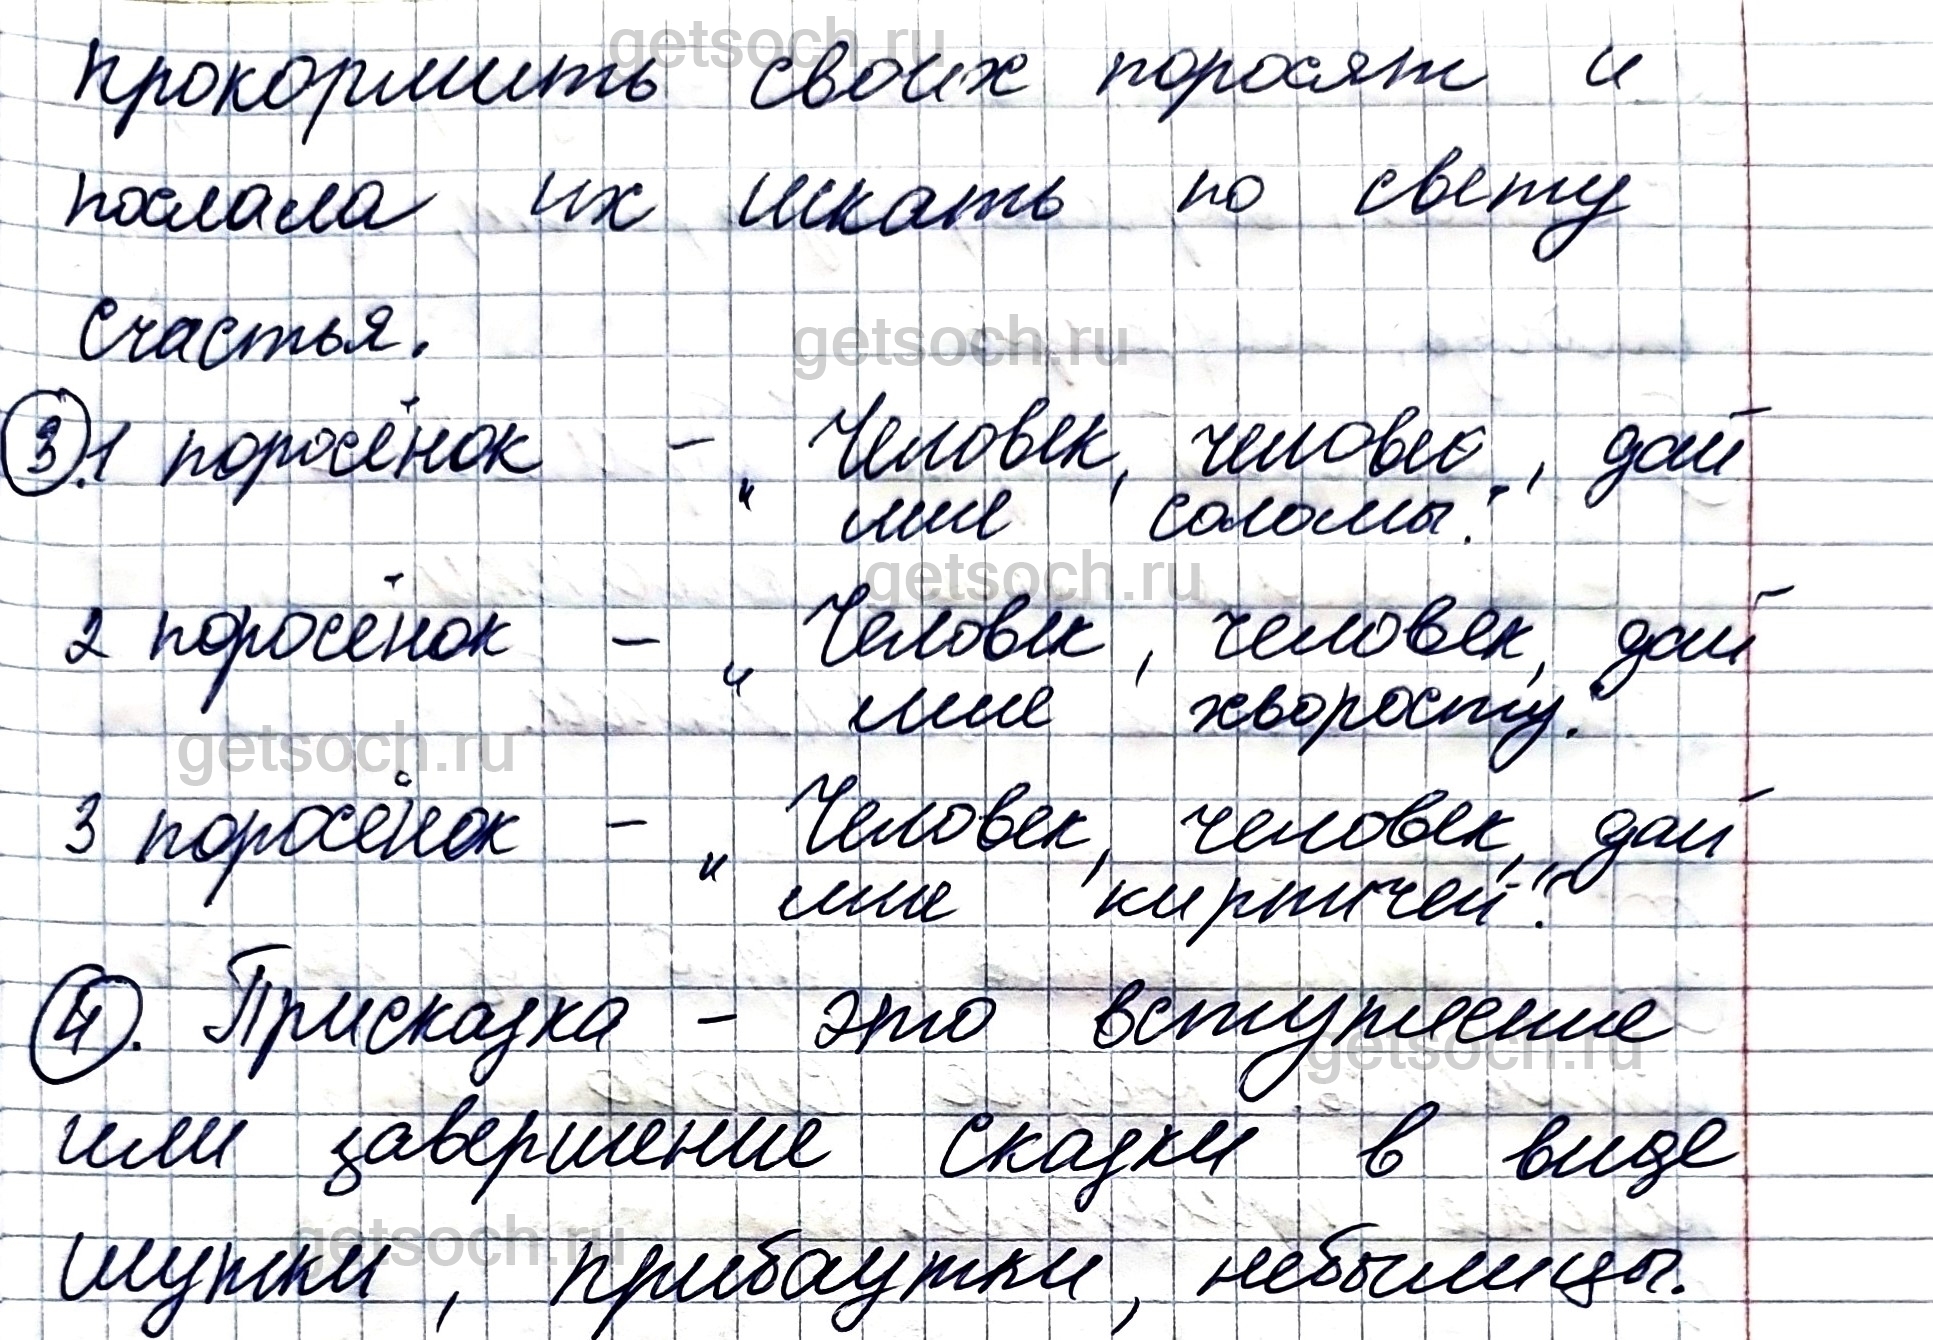 getsoch.ru
прокормить своих поросят и
послала их искать по свету
счастья.
getsoch.ru
3. 1 поросёнок – „Человек, человек, дай
мне соломы."
getsoch.ru
2 поросёнок – „Человек, человек, дай
мне хворосту."
getsoch.ru
3 поросёнок – „Человек, человек, дай
мне кирпичей".
4. Присказка – это вступление
getsoch.ru
или завершение сказки в виде
getsoch.ru
шутки, прибаутки, небылицы.